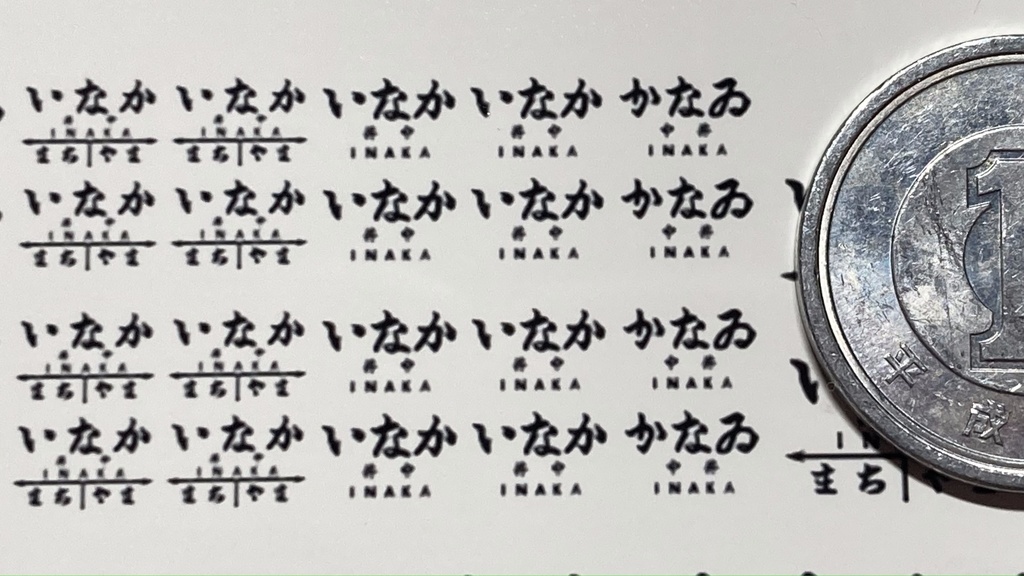 いなか いなか いなか いなか かなゐ
井中 井中 中井
INAKA INAKA INAKA INAKA INAKA
まち やま まち やま
いなか いなか いなか いなか かなゐ
井中 井中 中井
INAKA INAKA INAKA INAKA INAKA
まち やま まち やま
いなか いなか いなか いなか かなゐ
井中 井中 中井
INAKA INAKA INAKA INAKA INAKA
まち やま まち やま
いなか いなか いなか いなか かなゐ
井中 井中 中井
INAKA INAKA INAKA INAKA INAKA
まち やま まち やま まち
1
平成